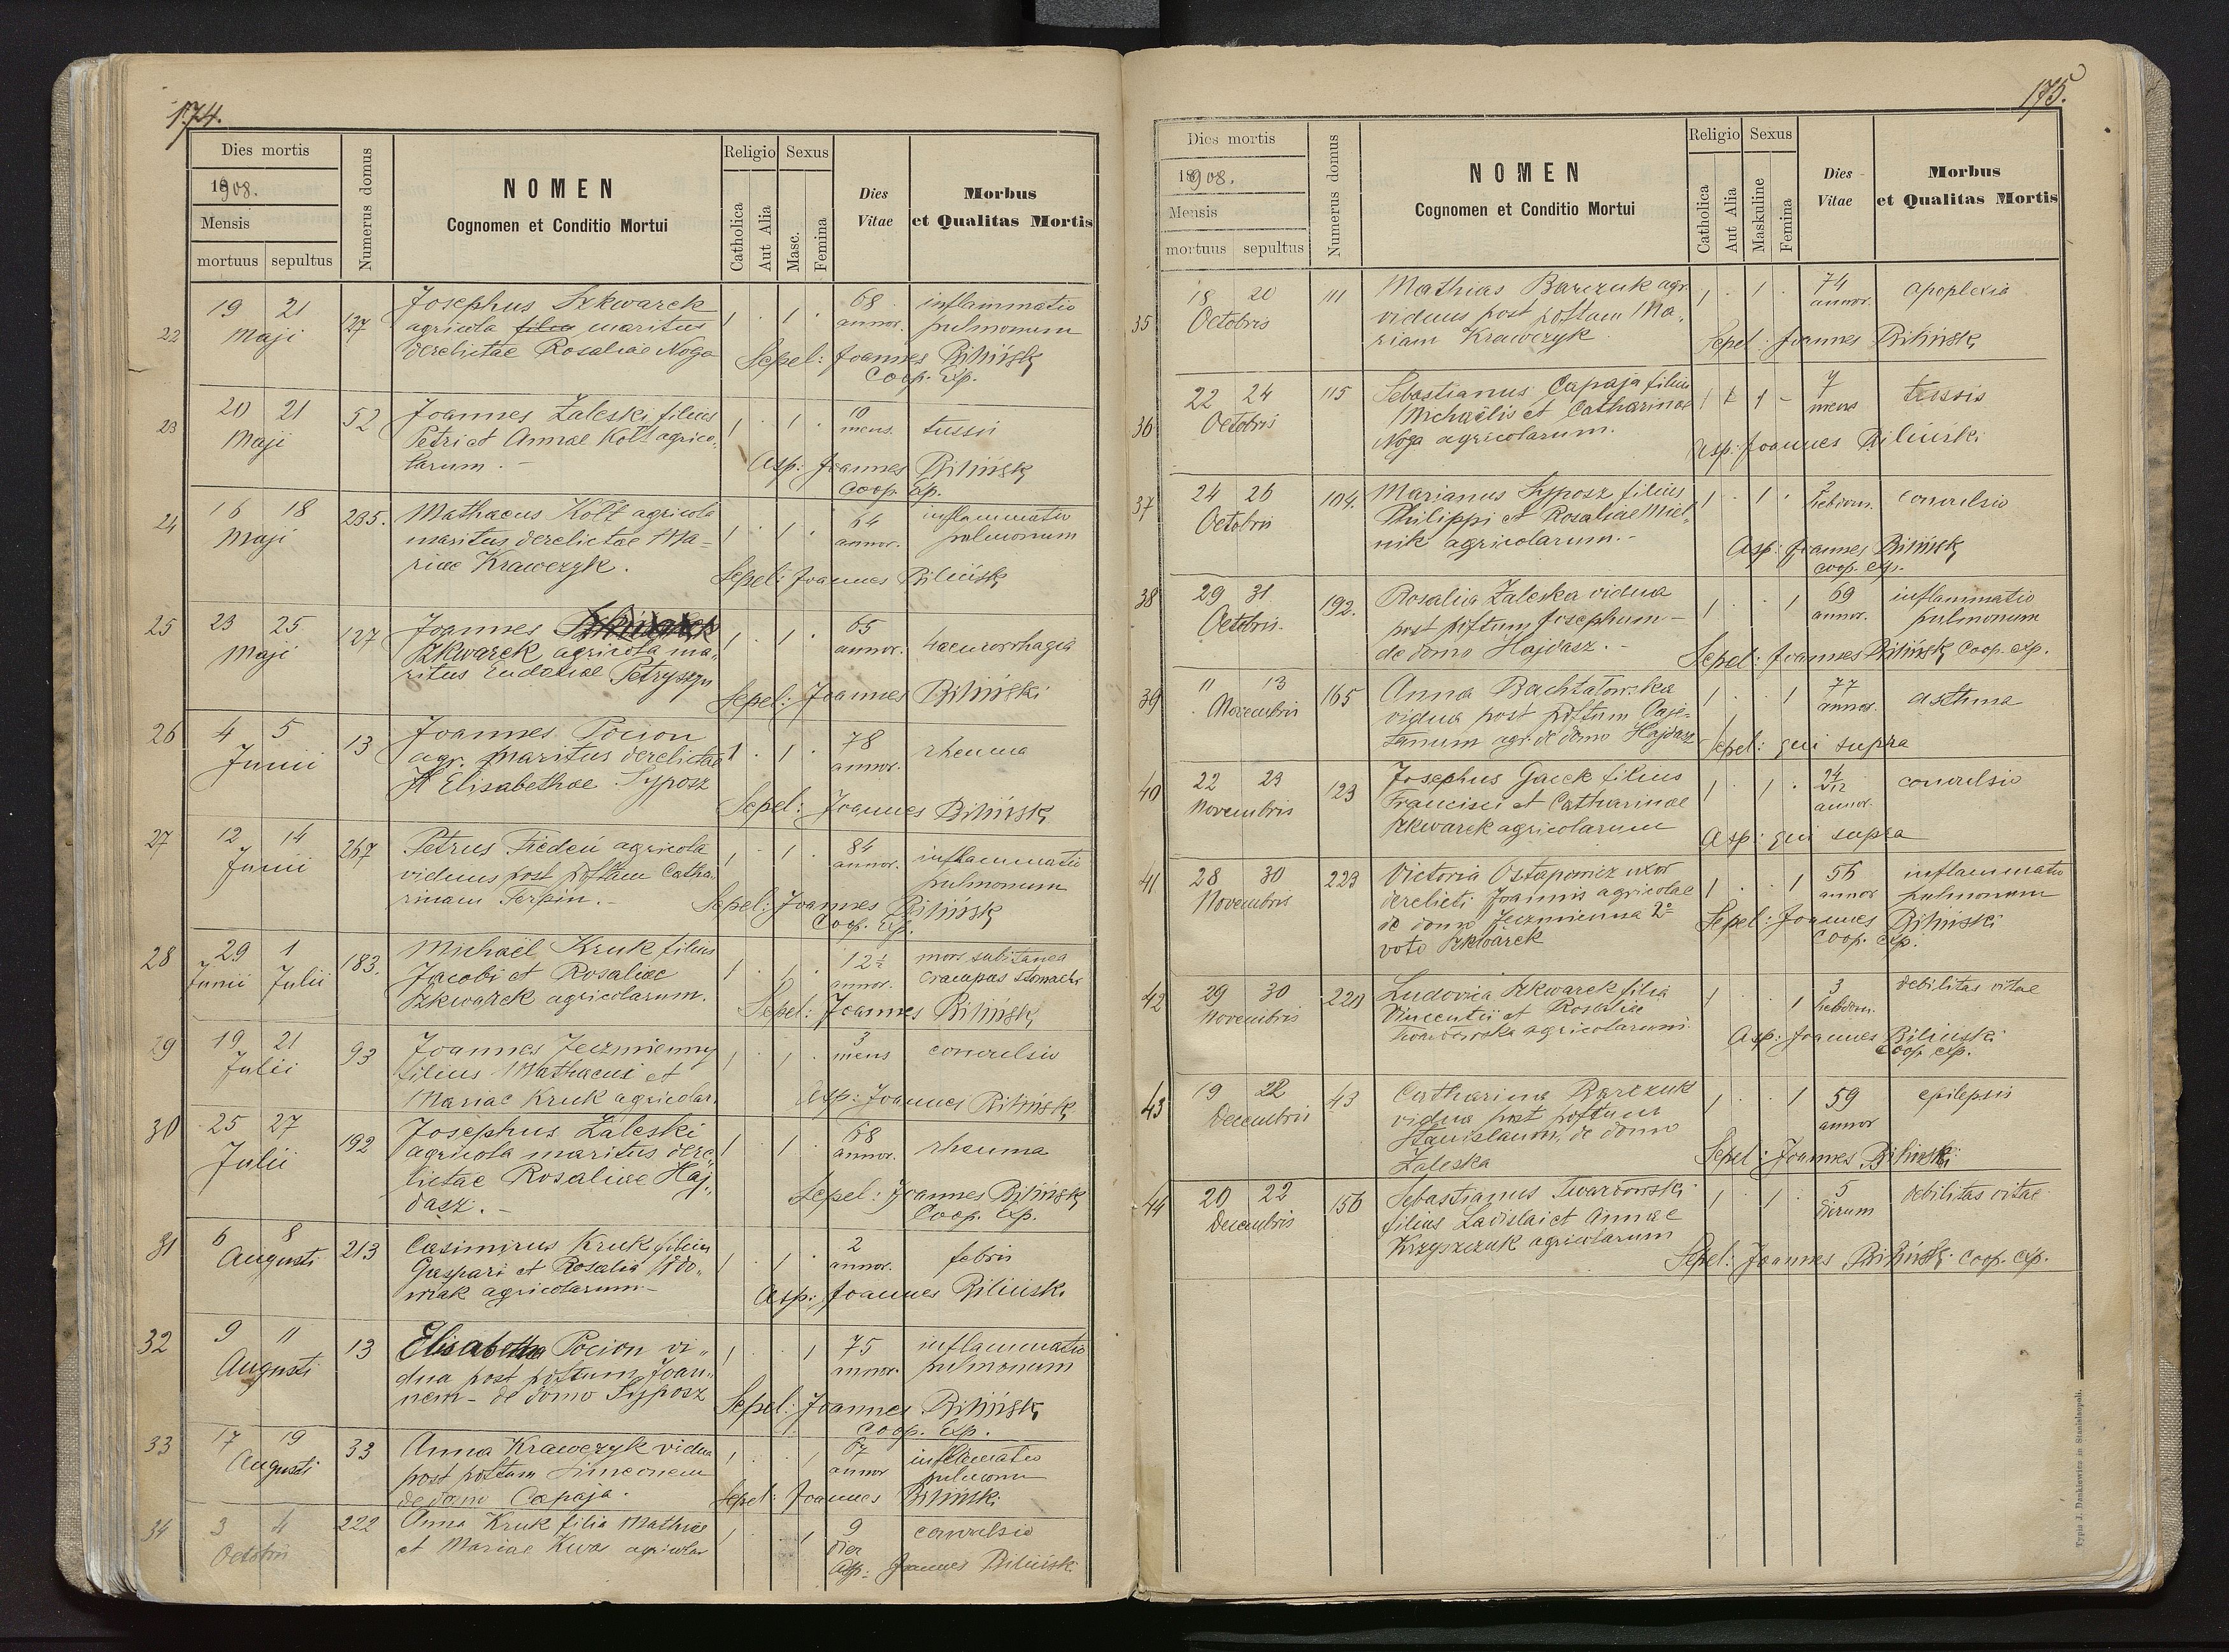 174.
Dies mortis
1908.
Mensis
mortuus sepultus
Numerus domus
NOMEN
Cognomen et Conditio Mortui
Religio
Catholica
Aut Alia
Sexus
Masc.
Femina
Dies
Vitae
Morbus
et Qualitas Mortis
22 19 21 Maji 127
Josephus Szkwarek
agricola filiu maritus
derelictae Rosaliae Noga
1 · 1 · 68 annor.
inflammatio
pulmonum
Sepel: Joannes Biliński
Coop. Exp.
23 20 21 Maji 52
Joannes Zaleski filius
Petri et Annae Kołt agrico-
larum. -
1 · 1 · 10 mens. tussis
Asp: Joannes Biliński
Coop. Exp.
24 16 18 Maji 235.
Mathaeus Kołt agricola
maritus derelictae Ma=
riae Krawczyk.
1 · 1 · 64 annor.
inflammatio
pulmonum
Sepel: Joannes Biliński
25 23 25 Maji 127
Joannes
Szkwarek agricola ma-
ritus Eudoxiae Petryszyn
1 · 1 · 65 annor. haemorrhagia
Sepel: Joannes Biliński
26 4 5 Junii 13
Joannes Pocion
agr. maritus derelictae
Elisabethae Syposz
1 · 1 · 78 annor. rheuma
Sepel: Joannes Biliński
27 12 14 Junii 267
Petrus Fiedeń agricola
viduus post pftam Catha-
rinam Terpin. -
1 · 1 · 84 annor.
inflammatio
pulmonum
Sepel: Joannes Biliński
Coop. Exp.
28 29 Junii 1 Julii 183.
Michaël Kruk filius
Jacobi et Rosaliae
Szkwarek agricolarum.
1 · 1 · 12½ annor.
mors subitanea
stomachi
Sepel: Joannes Biliński
29 19 21 Julii 93
Joannes Jeczmienny
filius Mathaei et
Mariae Kruk agricolar.
1 · 1 · 3 mens convulsio
Asp: Joannes Biliński
30 25 27 Julii 192
Josephus Zaleski
agricola maritus dere-
lictae Rosaliae Haj-
dasz. -
1 · 1 · 68 annor. rheuma
Sepel: Joannes Biliński
Coop. Exp.
31 6 8 Augusti 213
Casimirus Kruk filius
Gaspari et Rosalia Wdo-
wiak agricolarum -
1 · 1 · 2 annor. febris
Asp: Joannes Biliński
32 9 11 Augusti 13
Elisabetha Pocion vi-
dua post pftum Joan-
nem - de domo Syposz
1 · · 1 75 annor.
inflammatio
pulmonum
Sepel: Joannes Biliński
Coop. Exp.
33 17 19 Augusti 33
Anna Krawczyk vidua
post pftum Simeonem
de domo Capaja.
1 · · 1 67 annor
inflamatio
pulmonum
Sepel: Joannes Biliński
34 3 4 Octobris 222
Anna Kruk filia Mathiae
et Mariae Kwas agricolar
1 · · 1 9 dier convulsio
Asp: Joannes Biliński
175.
Dies mortis
1908.
Mensis
mortuus sepultus
Numerus domus
NOMEN
Cognomen et Conditio Mortui
Religio
Catholica
Aut Alia
Sexus
Maskuline
Femina
Dies
Vitae
Morbus
et Qualitas Mortis
35 18 20 Octobris 111
Mathias Barczuk agr.
viduus post pftam Ma-
riam Krawczyk
1 · 1 · 74 annor. apoplexia
Sepel: Joannes Biliński
36 22 24 Octobris 115
Sebastianus Capaja filius
Michaëlis et Catharinae
Noga agricolarum.
1 1 1 - 7 mens tussis
Asp: Joannes Biliński
37 24 26 Octobris 104.
Marianus Syposz filius
Philippi et Rosaliae Miel-
nik agricolarum. -
1 · 1 · 2 hebdom. convulsio
Asp: Joannes Biliński
coop. exp.
38 29 31 Octobris 192.
Rosalia Zaleska vidua
post pftum Josephum -
de domo Hajdasz. -
1 · · 1 69 annor.
inflammatio
pulmonum
Sepel: Joannes Biliński Coop. exp.
39 11 13 Novembris 165
Anna Bachtałowska
vidua post pftum Caje-
tanum agr. de domo Hajdasz
1 · · 1 77 annor. asthma
Sepel: qui supra
40 22 23 Novembris 123
Josephus Gacek filius
Francisci et Catharinae
Szkwarek agricolarum
1 · 1 · annor. convulsio
Asp: qui supra
41 28 30 Novembris 223
Victoria Ostapowicz uxor
derelicti Joannis agricolae
de domo Jeczmienna 2º
voto Szkwarek
1 · · 1 56 annor
inflammatio
pulmonum
Sepel: Joannes Biliński
Coop. exp.
42 29 30 Novembris 220
Ludovica Szkwarek filia
Vincentii et Rosaliae
agricolarum.
1 · · 1 3 hebdom. debilitas vitae
Asp: Joannes Biliński
Coop. exp.
43 19 22 Decembris 43
Catharina Barczuk
vidua post pftum
Stanislaum, de domo
Zaleska
1 · · 1 59 annor epilepsis
Sepel: Joannes Biliński
44 20 22 Decembris 156
Sebastianus Twardowski
filius Ladislai et Annae
Krzyszczuk agricolarum
1 · 1 · 5 dierum debilitas vitae
Sepel: Joannes Biliński coop. exp.
Typis J. Dankiewicz in Stanislaopoli.